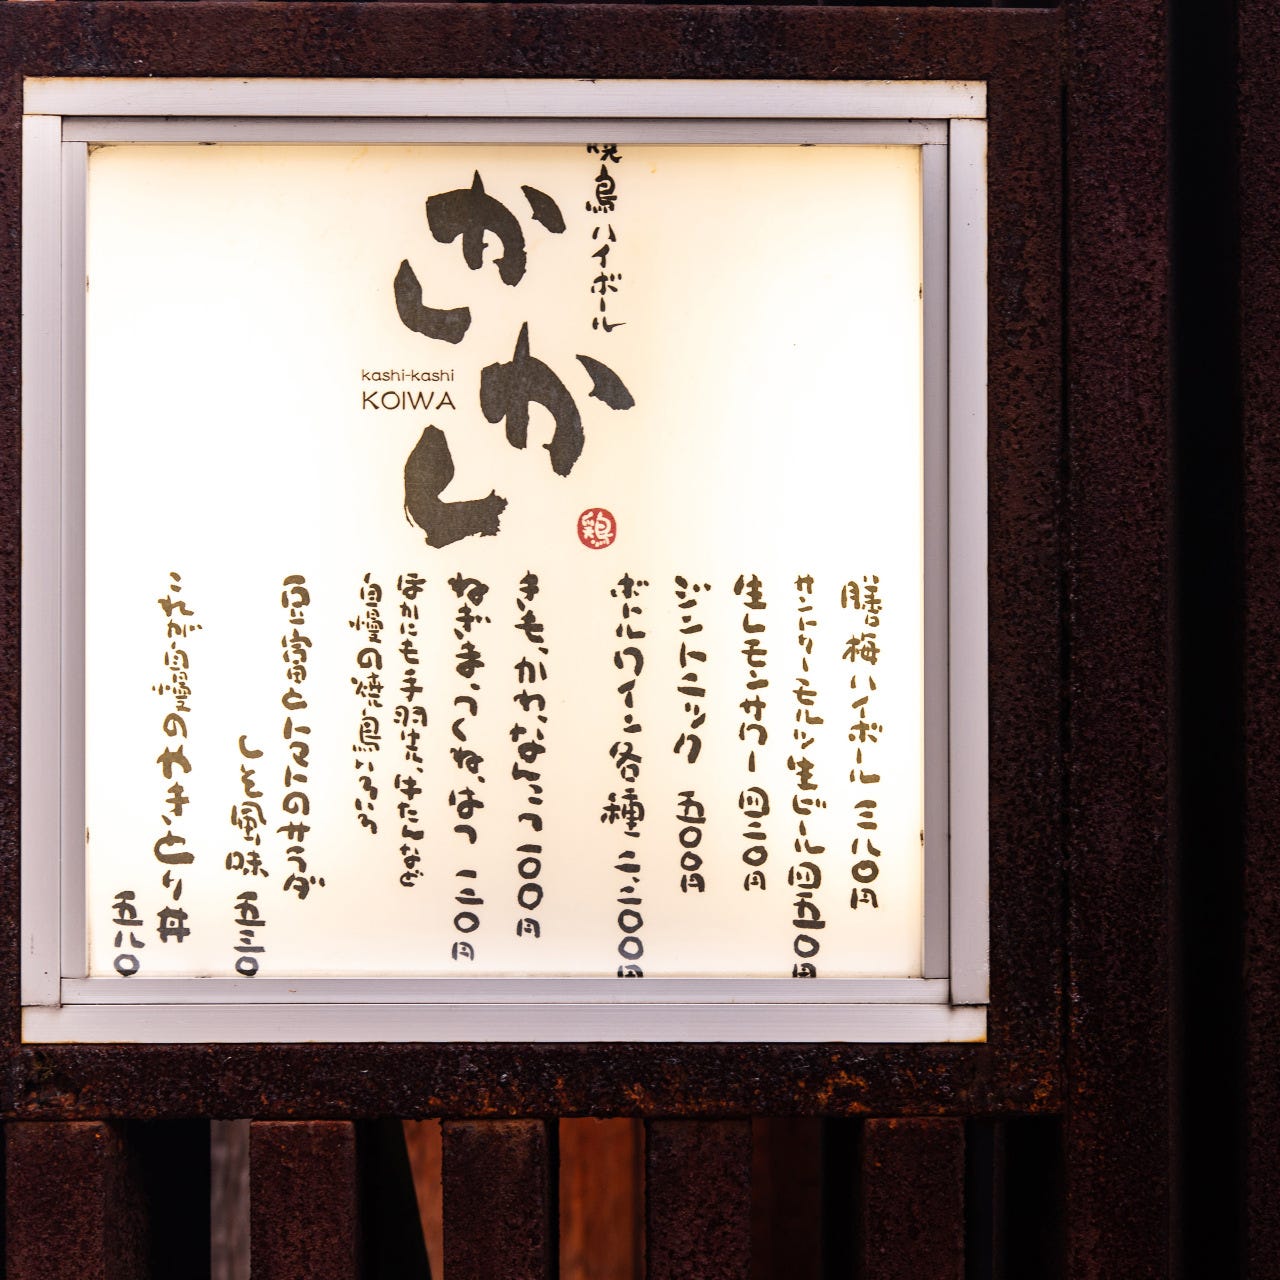 焼鳥ハイボール
かしかし
kashi-kashi
KOIWA
鶏
膳梅ハイボール 三八〇円
サントリーモルツ生ビール 四五〇円
生レモンサワー 四二〇円
ジントニック 五〇〇円
ボトルワイン各種 二、二〇〇円
きも、かわ、なんこつ 一〇〇円
ねぎま、つくね、はつ 一二〇円
ほかにも手羽先、牛たんなど
自慢の焼鳥いろいろ
豆富とトマトのサラダ
しそ風味 五三〇
これが自慢のやきとり丼
五八〇